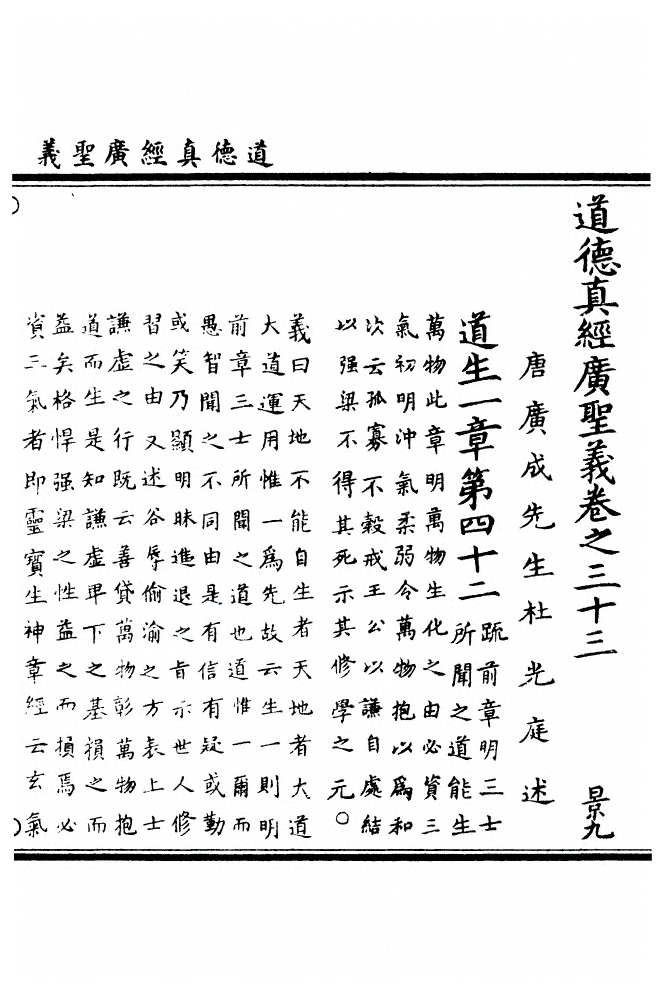 道德真經廣聖義
道德真經廣聖義卷之三十三
景九
唐廣成先生杜光庭述
道生一章第四十二
疏前章明三士
所聞之道能生
萬物此章明萬物生化之由必資三
氣初明沖氣柔弱令萬物抱以為和
次云孤寡不穀戒王公以謙自處結
以强梁不得其死示其修學之元○
義曰天地不能自生者天地者大道
大道運用惟一為先故云生一則明
前章三士所聞之道也道惟一爾而
愚智聞之不同由是有信有疑或勤
或笑乃顯明昧進退之旨示世人修
習之由又述谷辱偷渝之方表上士
謙虛之行既云善貸萬物彰萬物抱
道而生是知謙虛卑下之基損之而
益矣格悍强梁之性益之而損焉必
資三氣者即靈寶生神章經云玄氣